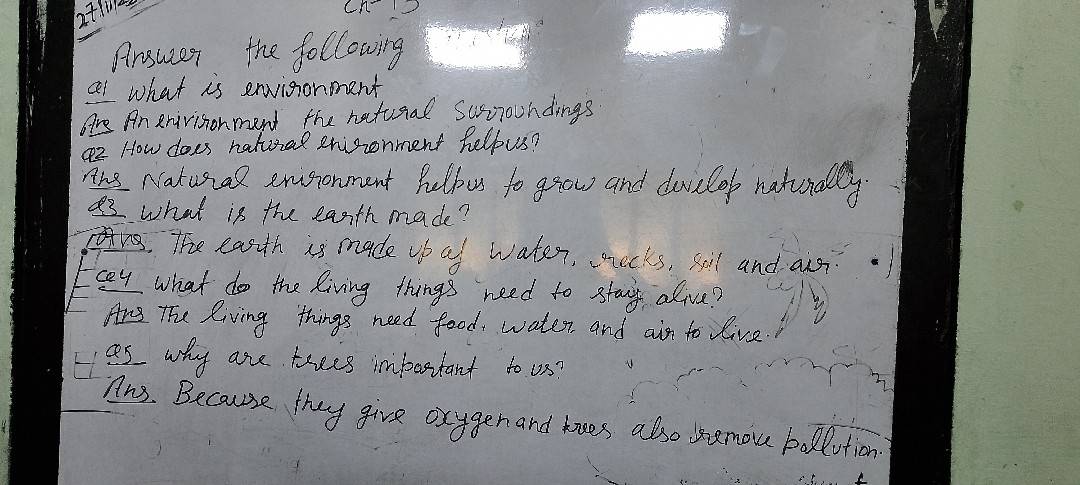 27/11/22
Ch-13
Answer the following
Q1 What is environment
Ans An enivironment the natural Surroundings
Q2 How does natural enironment helpus?
Ans Natural enironment helpus to grow and develop naturally.
Q3 What is the earth made?
Ans. The earth is made up of water, rocks, soil and air.
Q4 What do the living things need to stay alive?
Ans The living things need food, water and air to live.
Q5 Why are trees important to us?
Ans. Because they give oxygen and trees also remove pollution.